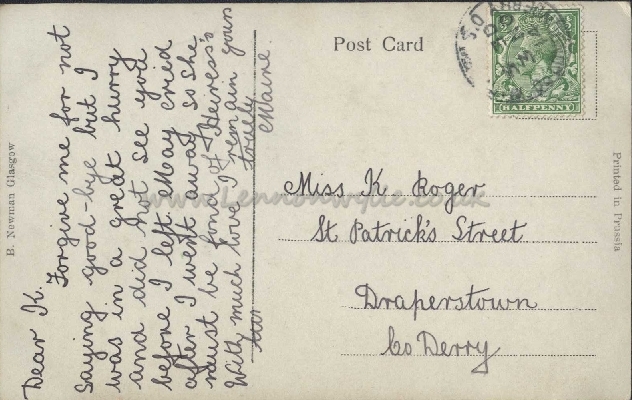 Post Card
HALFPENNY
B. Newman Glasgow
Printed in Prussia
www.Lennonwylie.co.uk
Dear K.
Forgive me for not
saying good-bye but I
was in a great hurry
and did not see you
before I left. May cried
after I went away so she
must be fond of Heiress's
With much love I remain yours
truely
Maine.
Miss K Roger
St Patrick's Street
Draperstown
Co Derry